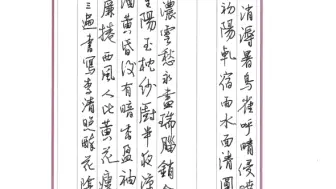 消溽暑鳥雀呼晴侵
初陽乾宿雨水面清圓
濃雲愁永晝瑞腦銷金
陽玉枕紗廚半夜涼
酒黃昏後有暗香盈袖
簾捲西風人比黃花瘦
三遍書寫李清照醉花陰